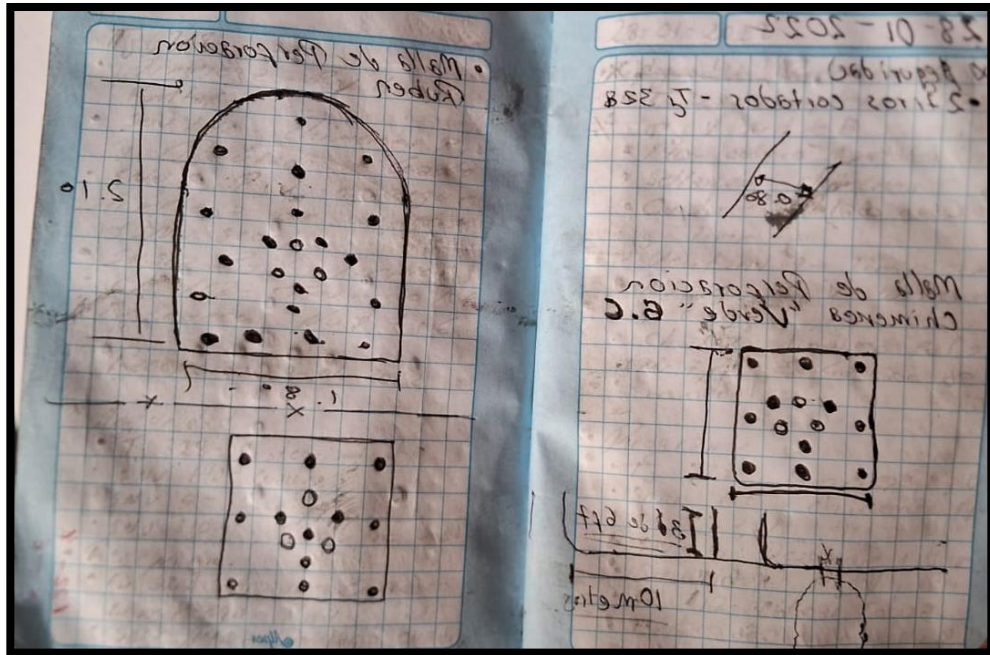 28-01-2022
Seguridad
• 2 Tiros cortados - Tj 328
0.80
Malla de Perforación
Chimenea "Verde" B.C
de 6ft
X
10 metros
• Malla de Perforación
Ruben
2.10
1.8
X